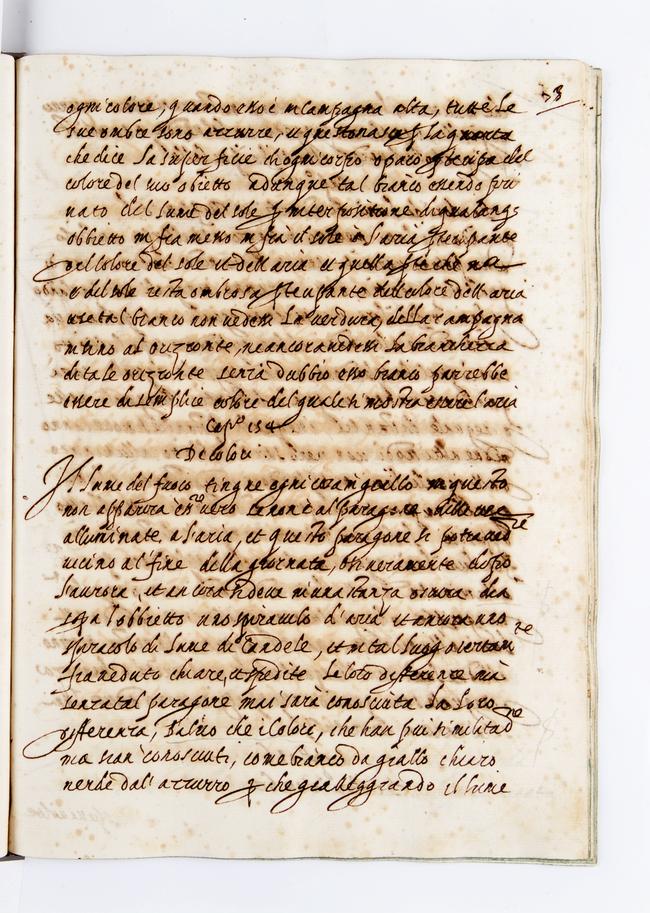 38
ogni colore, quando esso è in campagna alta, tutte le
sue ombre sono azzurre, et questo nasce p la quarta
che dice la superficie di ogni corpo opaco participa del
colore del suo obietto adunque tal bianco essendo pri
uato del lume del sole p interpositione di qualung3
obbietto in fra messo in frà il sole è l'aria participante
del colore del sole et dell'aria et quella parte che no
u del sole resta ombrosa participante dell colore dell'aria
et se tal bianco non uedessi la uerdura della campagna
insino al orizonte, ne ancora uedessi la bianchezza
di tale orizonte senza dubbio esso bianco parrebbe
essere di semplice colore del quale si mostra essere l'aria
Cap.º 134
De colori
Il lume del fuoco tingie ogni cosa in giallo mà questo
non apparirà esser uero se non è al paragone delle cose
alluminate, a l'aria, et questo paragone si potra ued
ere
uicino al fine della giornata, o ueramente dopo
l'aurora, et ancora si deue in una stanza oscura dia
sopa l'obbietto uno spiraculo d'aria et ancora uno
spiracolo di lume di Candele, et in tal luogo certam
te
fia ueduto chiare, et spedite le loro differenze mà
senza tal paragone mai sarà conosciuta la loro
differenza, saluo che i colore, che han piu similitud
ne
ma sian conosciuti, come bianco da giallo chiaro
uerde dal' azzurro p che gialleggiando il lume